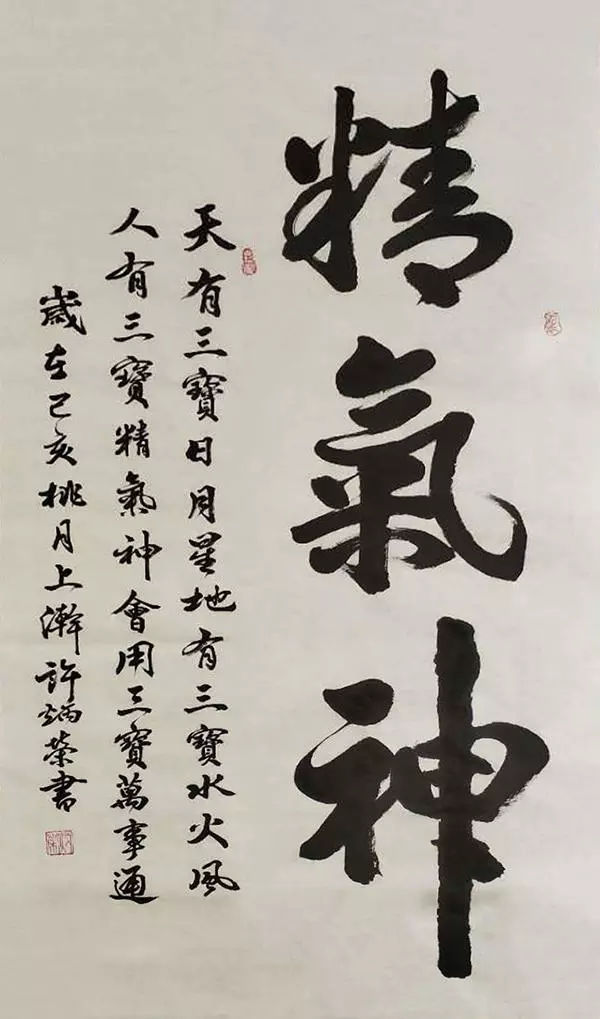 精氣神
天有三寶日月星地有三寶水火風
人有三寶精氣神會用三寶萬事通
歲在己亥桃月上澣許炳榮書